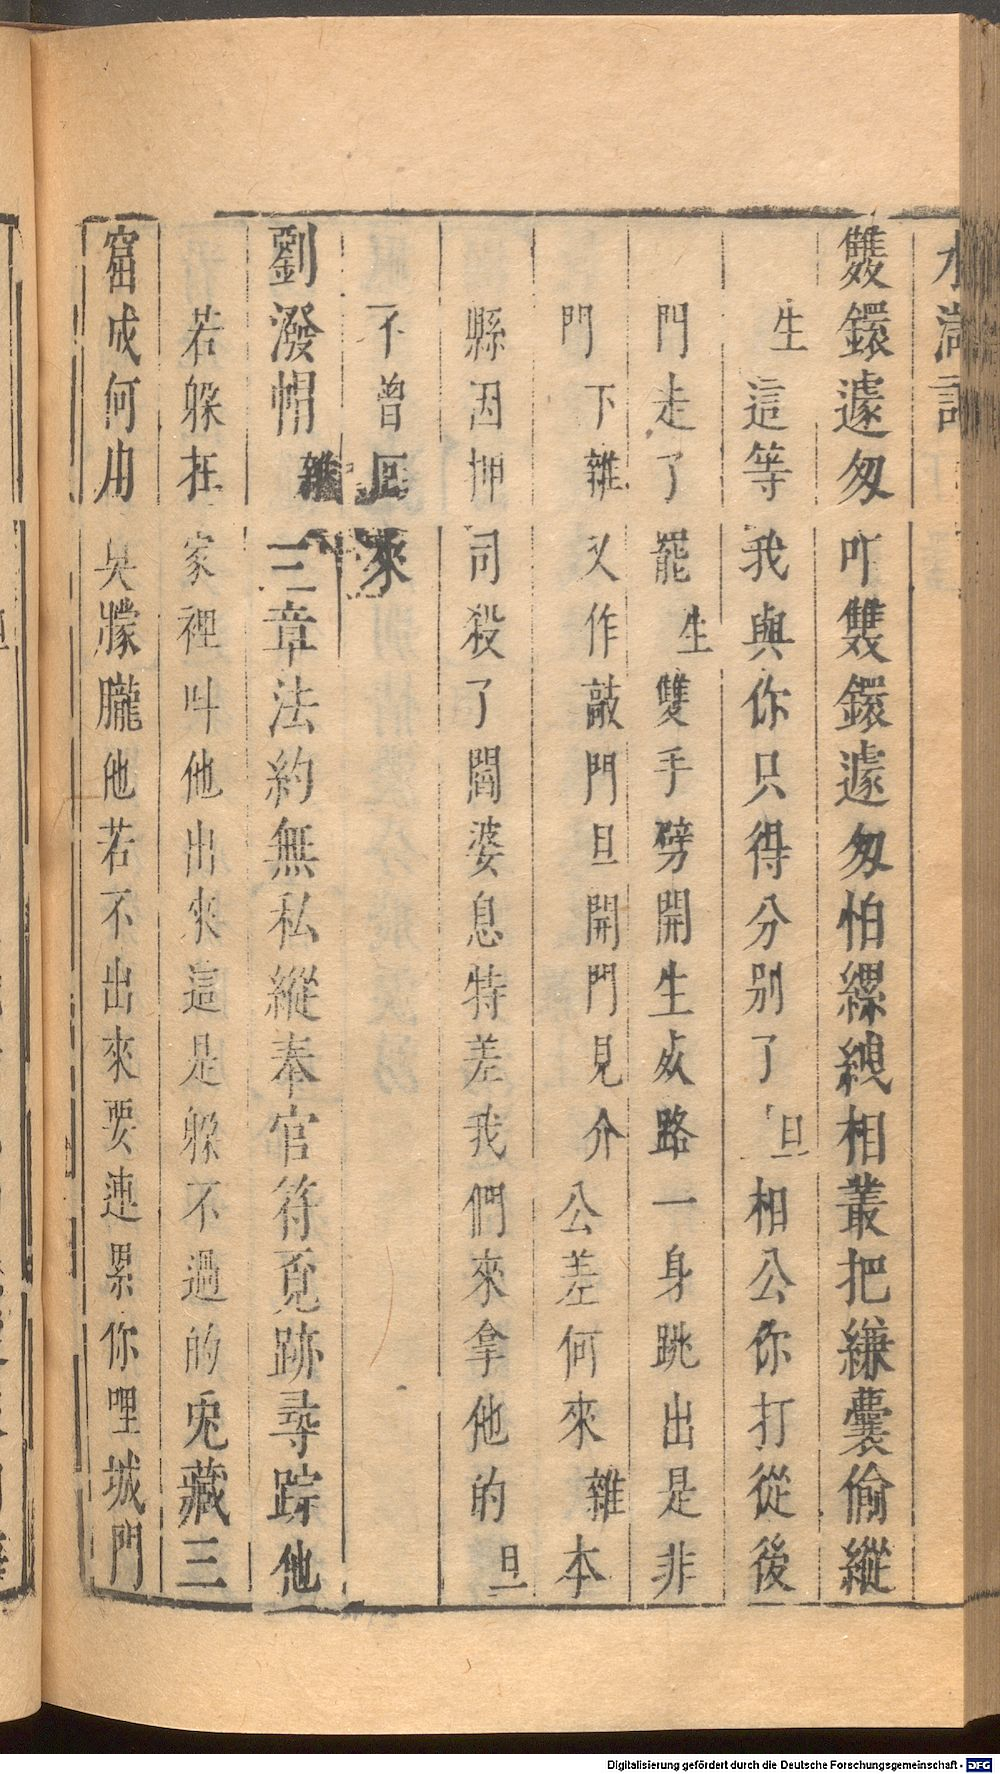 水滸記
雙鐶遽匆吖雙鐶遽匆怕縲絏相叢把縑囊偷縱
生這等我與你只得分別了旦相公你打從後
門走了罷生雙手劈開生死路一身跳出是非
門下雜又作敲門旦開門見介公差何來雜本
縣因押司殺了閻婆息特差我們來拿他的旦
不曾囘來
劉潑帽雜三章法約無私縱奉官符覓跡尋踪他
若躲在家裡叫他出來這是躲不過的兎藏三
窟成何用吳朦朧他若不出來要連累你哩城門
Digitalisierung gefördert durch die Deutsche Forschungsgemeinschaft - DFG